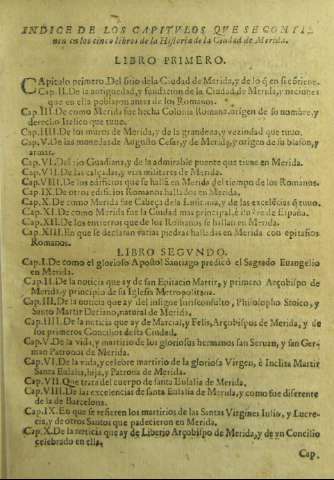 INDICE DE LOS CAPITVLOS QVE SE CONTIE
nen en los cinco libros de la Historia de la Ciudad de Merida.
LIBRO PRIMERO.
CApitulo primero. Del sitio de la Ciudad de Merida, y de lo q̃ en si cõtiene.
Cap. II. De la antiguedad, y fundacion de la Ciudad de Merida, y naciones
que en ella poblaron antes de los Romanos.
Cap. III. De como Merida fue hecha Colonia Romana, origen de su nombre, y
derecho Italico que tuuo.
Cap. IIII. De los muros de Merida, y de la grandeza, y vezindad que tuuo.
Cap. V. De las monedas de Augusto Cesar, y de Merida, y origen de su blason, y
armas.
Cap. VI. Del rio Guadiana, y de la admirable puente que tiene en Merida.
Cap. VII. De las calçadas, y vias militares de Merida.
Cap. VIII. De los edificios que se hallã en Merida del tiempo de los Romanos.
Cap. IX. De otros edificios Romanos hallados en Merida.
Cap. X. De como Merida fue Cabeça de la Lusitania, y de las excelẽcias q̃ tuuo.
Cap. XI. De como Merida fue la Ciudad mas principal, è ilustre de España.
Cap. XII. De los entierros que de los Romanos se hallan en Merida.
Cap. XIII. En que se declaran varias piedras halladas en Merida con epitafios
Romanos.
LIBRO SEGVNDO.
Cap. I. De como el glorioso Apostol Santiago predicó el Sagrado Euangelio
en Merida.
Cap. II. De la noticia que ay de san Epitacio Martir, y primero Arçobispo de
Merida, y principio de su Iglesia Metropolitana.
Cap. III. De la noticia que ay del insigne Iurisconsulto, Philosopho Stoico, y
Santo Martir Deciano, natural de Merida.
Cap. IIII. De la noticia que ay de Marcial, y Felis, Arçobispos de Merida, y de
los primeros Concilios desta Ciudad.
Cap. V. De la vida, y martirio de los gloriosos hermanos san Seruan, y san Ger-
man Patronos de Merida.
Cap. VI. De la vida, y celebre martirio de la gloriosa Virgen, è Inclita Martir
Santa Eulalia, hija, y Patrona de Merida.
Cap. VII. Que trata del cuerpo de santa Eulalia de Merida.
Cap. VIII. De las excelencias de santa Eulalia de Merida, y como fue diferente
de la de Barcelona.
Cap. IX. En que se refieren los martirios de las Santas Virgines Iulia, y Lucre-
cia, y de otros Santos que padecieron en Merida.
Cap. X. De la noticia que ay de Liberio Arçobispo de Merida, y de vn Concilio
celebrado en ella.
Cap.